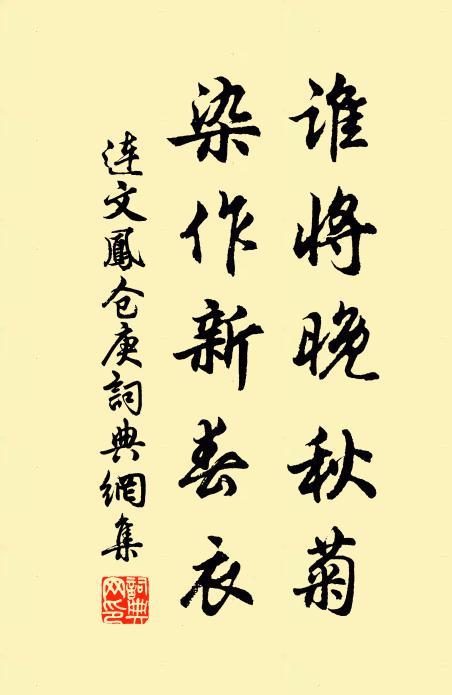 谁将晚秋菊
染作新春衣
连文鳳仓庚詞典網集
詞典网印